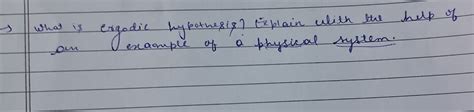 → What is ergodic hypothesis? Explain with the help of
an example of a physical system.